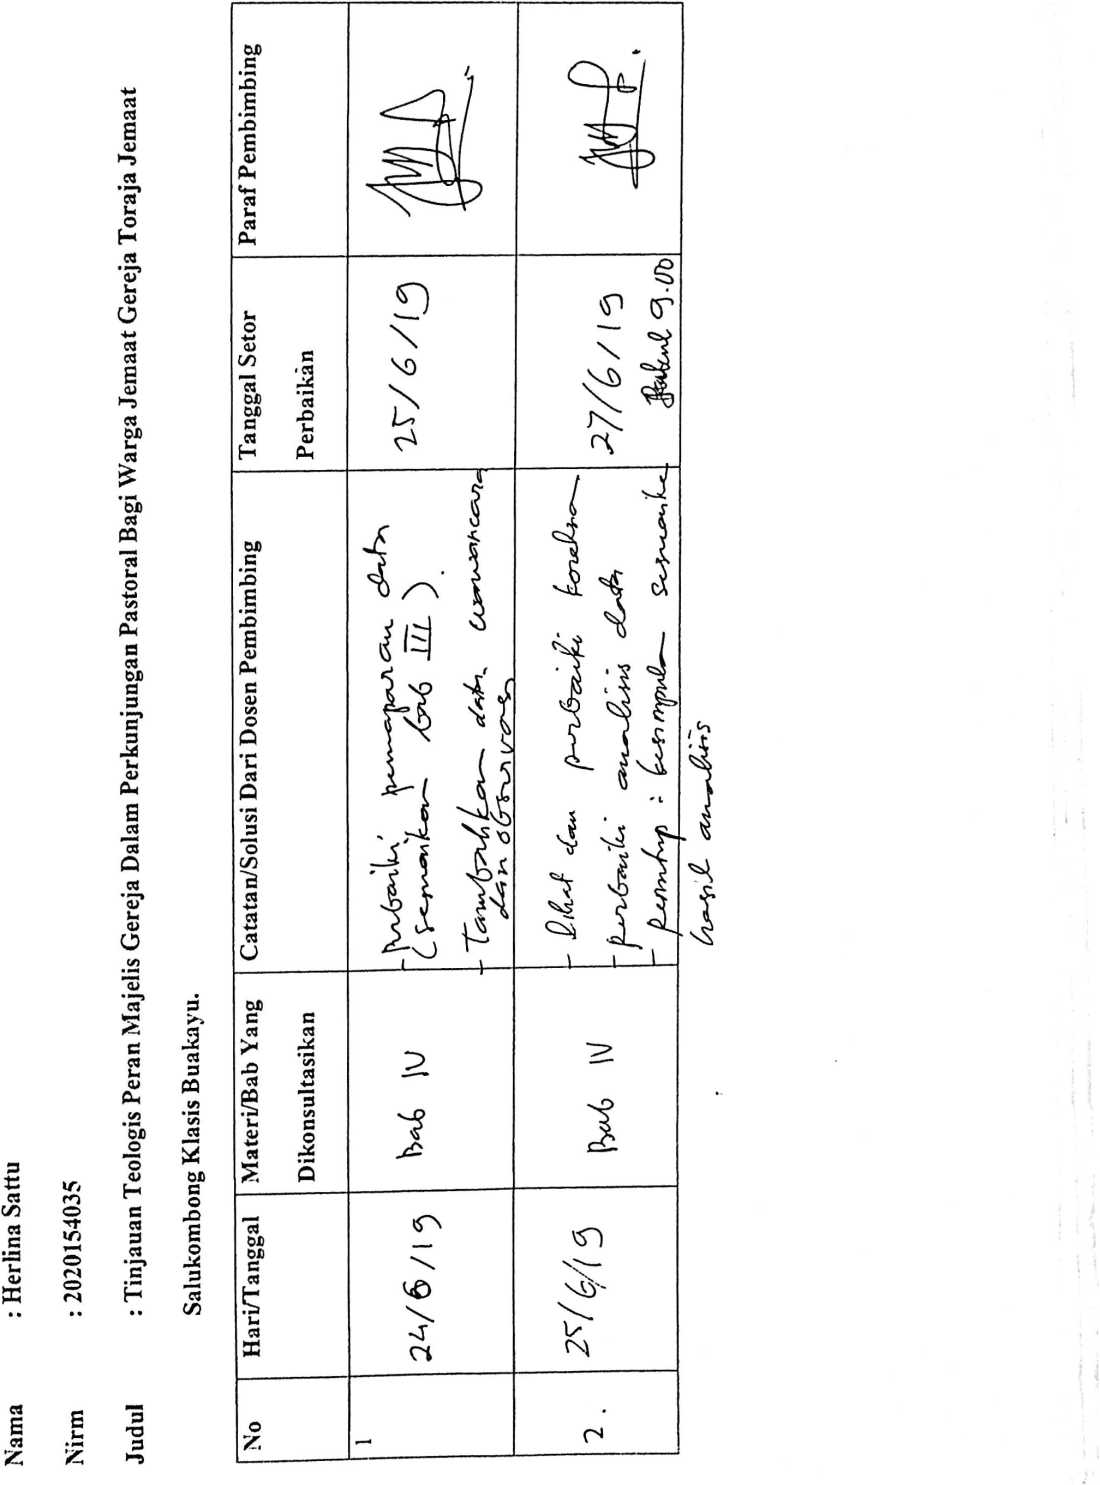 Nama : Herlina Sattu
Nirm : 2020154035
Judul : Tinjauan Teologis Peran Majelis Gereja Dalam Perkunjungan Pastoral Bagi Warga Jemaat Gereja Toraja Jemaat
Salukombong Klasis Buakayu.
No Hari/Tanggal Materi/Bab Yang Catatan/Solusi Dari Dosen Pembimbing Tanggal Setor Paraf Pembimbing
Dikonsultasikan Perbaikan
1 24/6/19 Bab IV - perbaiki pemaparan data 25/6/19
(sesuaikan bab III).
- Tambahkan data wawancara
dan observasi
2. 25/6/19 Bab IV - lihat dan perbaiki koreksian 27/6/19
- perbaiki analisis data
- penutup : kesimpulan 9.00
hasil analisis